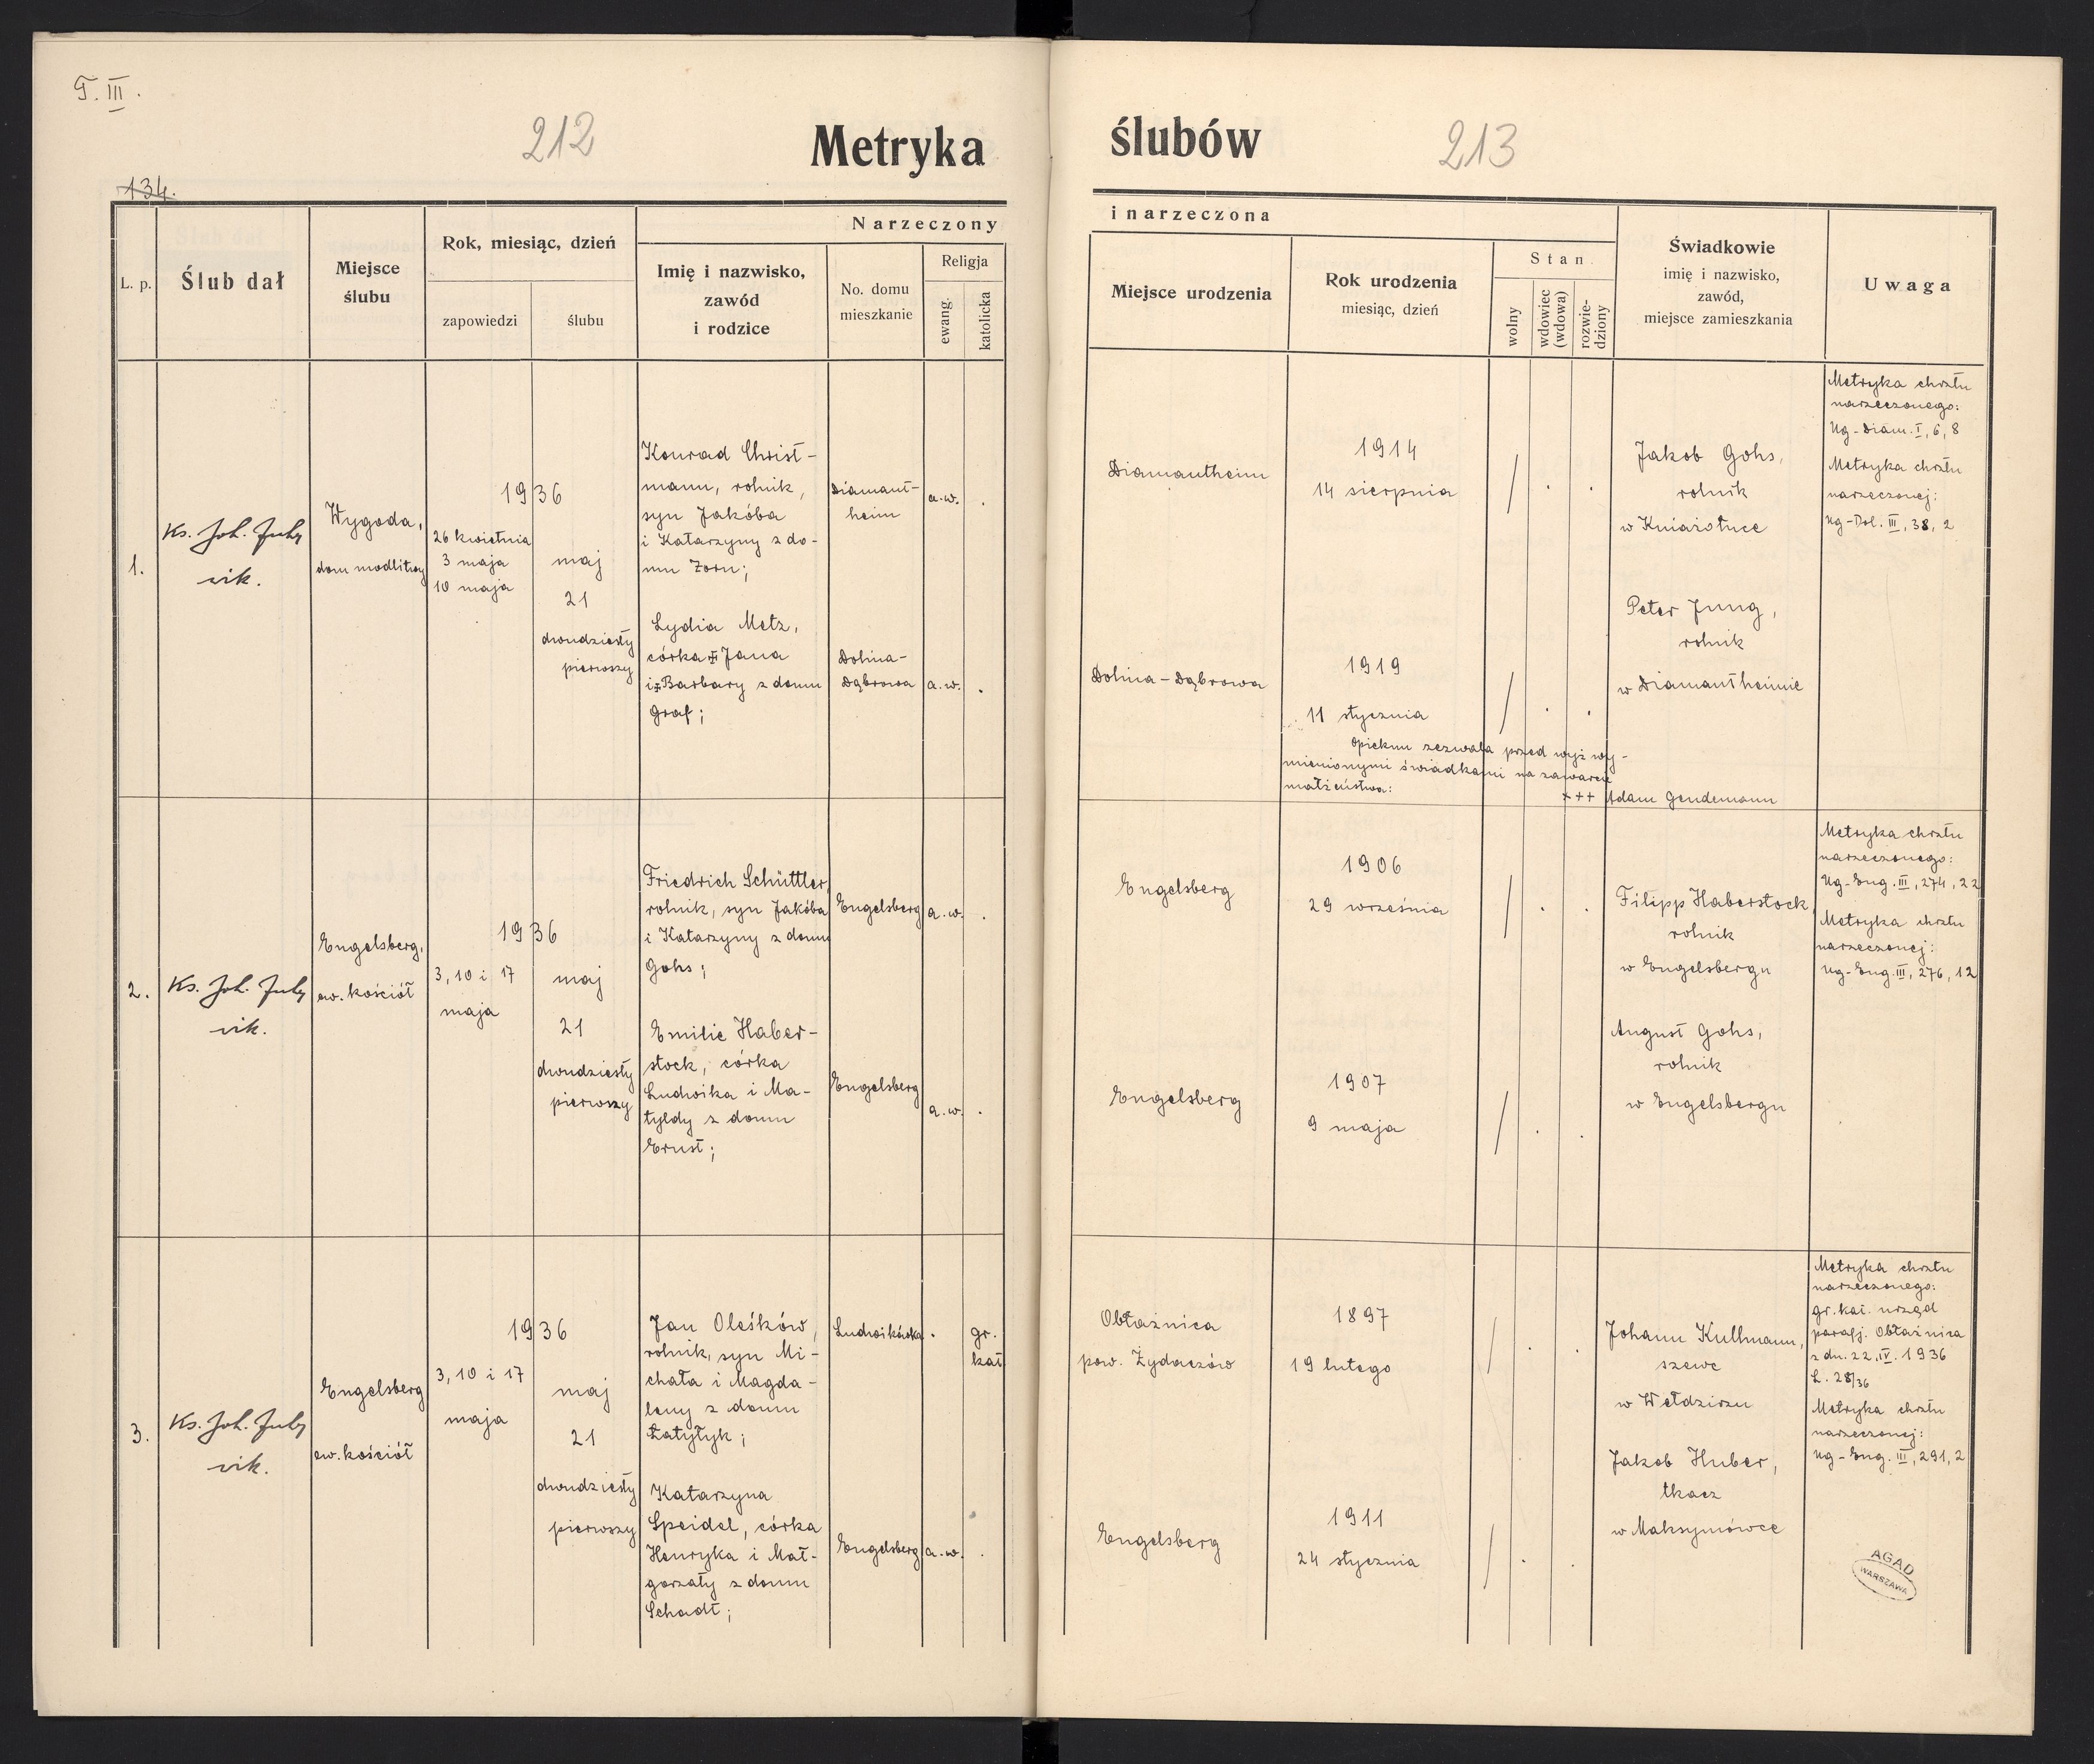 T. III.
212
Metryka
ślubów
213
134.
L. p.
Ślub dał
Miejsce
ślubu
Rok, miesiąc, dzień
zapowiedzi
ślubu
Narzeczony
Imię i nazwisko,
zawód
i rodzice
No. domu
mieszkanie
Religja
ewang.
katolicka
i narzeczona
Miejsce urodzenia
Rok urodzenia
miesiąc, dzień
Stan
wolny
wdowiec
(wdowa)
rozwie-
dziony
Świadkowie
imię i nazwisko,
zawód,
miejsce zamieszkania
Uwaga
1.
Ks. Joh.
vik.
Wygoda,
dom modlitwy
1936
26 kwietnia
3 maja
10 maja
maj
21
dwudziesty
pierwszy
Konrad Christ-
mann, rolnik,
syn Jakóba
i Katarzyny z do-
mu Zorn;
Diamant-
heim
a.w. .
Lydia Metz,
córka Jana
i Barbary z domu
Graf;
Dolina-
Dąbrowa
a.w. .
Diamantheim
1914
14 sierpnia
/ . .
Dolina-Dąbrowa
1919
11 stycznia
/ . .
Opiekun zezwala przed wyż wy-
mienionymi świadkami na zawarcie
małżeństwa:
+++ Adam Gendemann
Jakob Gohs,
rolnik
w Kniaziołuce
Peter Jung,
rolnik
w Diamantheimie
Metryka chrztu
narzeczonego:
Ug-Diam. I, 6, 8
Metryka chrztu
narzeczonej:
Ug-Dol. III, 38, 2
2.
Ks. Joh.
vik.
Engelsberg,
ew. kościół
1936
3, 10 i 17
maja
maj
21
dwudziesty
pierwszy
Friedrich Schüttler,
rolnik, syn Jakóba
i Katarzyny z domu
Gohs;
Engelsberg
a.w. .
Emilie Haber-
stock, córka
Ludwika i Ma-
tyldy z domu
Ernst;
Engelsberg
a.w. .
Engelsberg
1906
29 września
/ . .
Engelsberg
1907
9 maja
/ . .
Filipp Haberstock,
rolnik
w Engelsbergu
August Gohs,
rolnik
w Engelsbergu
Metryka chrztu
narzeczonego:
Ug-Eng. III, 274, 22
Metryka chrztu
narzeczonej:
Ug-Eng. III, 276, 12
3.
Ks. Joh.
vik.
Engelsberg
ew. kościół
1936
3, 10 i 17
maja
maj
21
dwudziesty
pierwszy
Jan Oleśków,
rolnik, syn Mi-
chała i Magda-
leny z domu
Łatytyk;
Ludwikówka
. gr.
kat.
Katarzyna
Speidel, córka
Henryka i Mał-
gorzaty z domu
Schadt;
Engelsberg
a.w. .
Obłaźnica
pow. Żydaczów
1897
19 lutego
/ . .
Engelsberg
1911
24 stycznia
/ . .
Johann Kullmann,
szewc
w Wełdzirzu
Jakob Huber,
tkacz
w Maksymówce
Metryka chrztu
narzeczonego:
gr. kat. urząd
parafj. Obłaźnica
z dn. 22. IV. 1936
L. 28/36
Metryka chrztu
narzeczonej:
Ug-Eng. III, 291, 2
AGAD
WARSZAWA